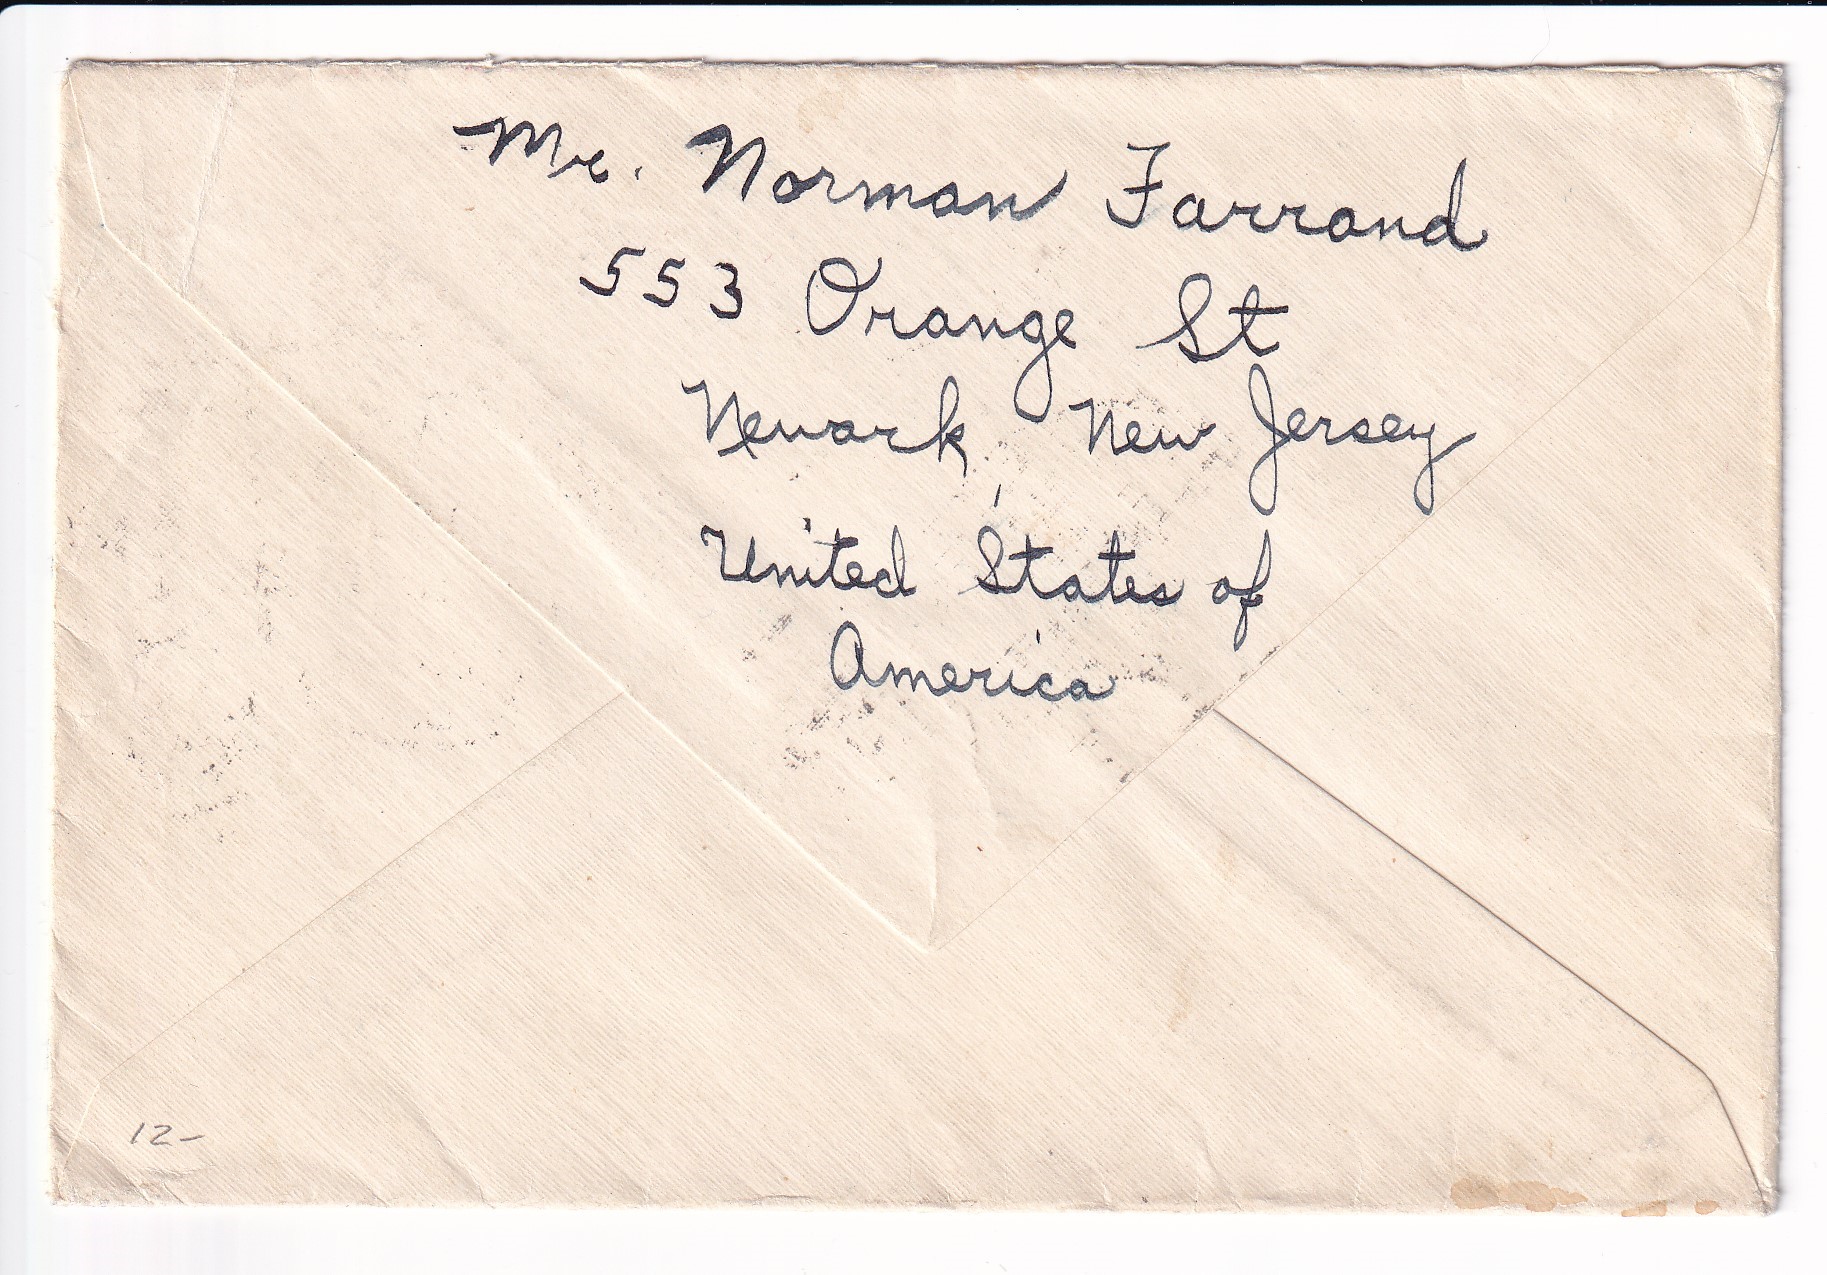 Mr. Norman Farrand
553 Orange St
Newark, New Jersey
United States of
America
12-